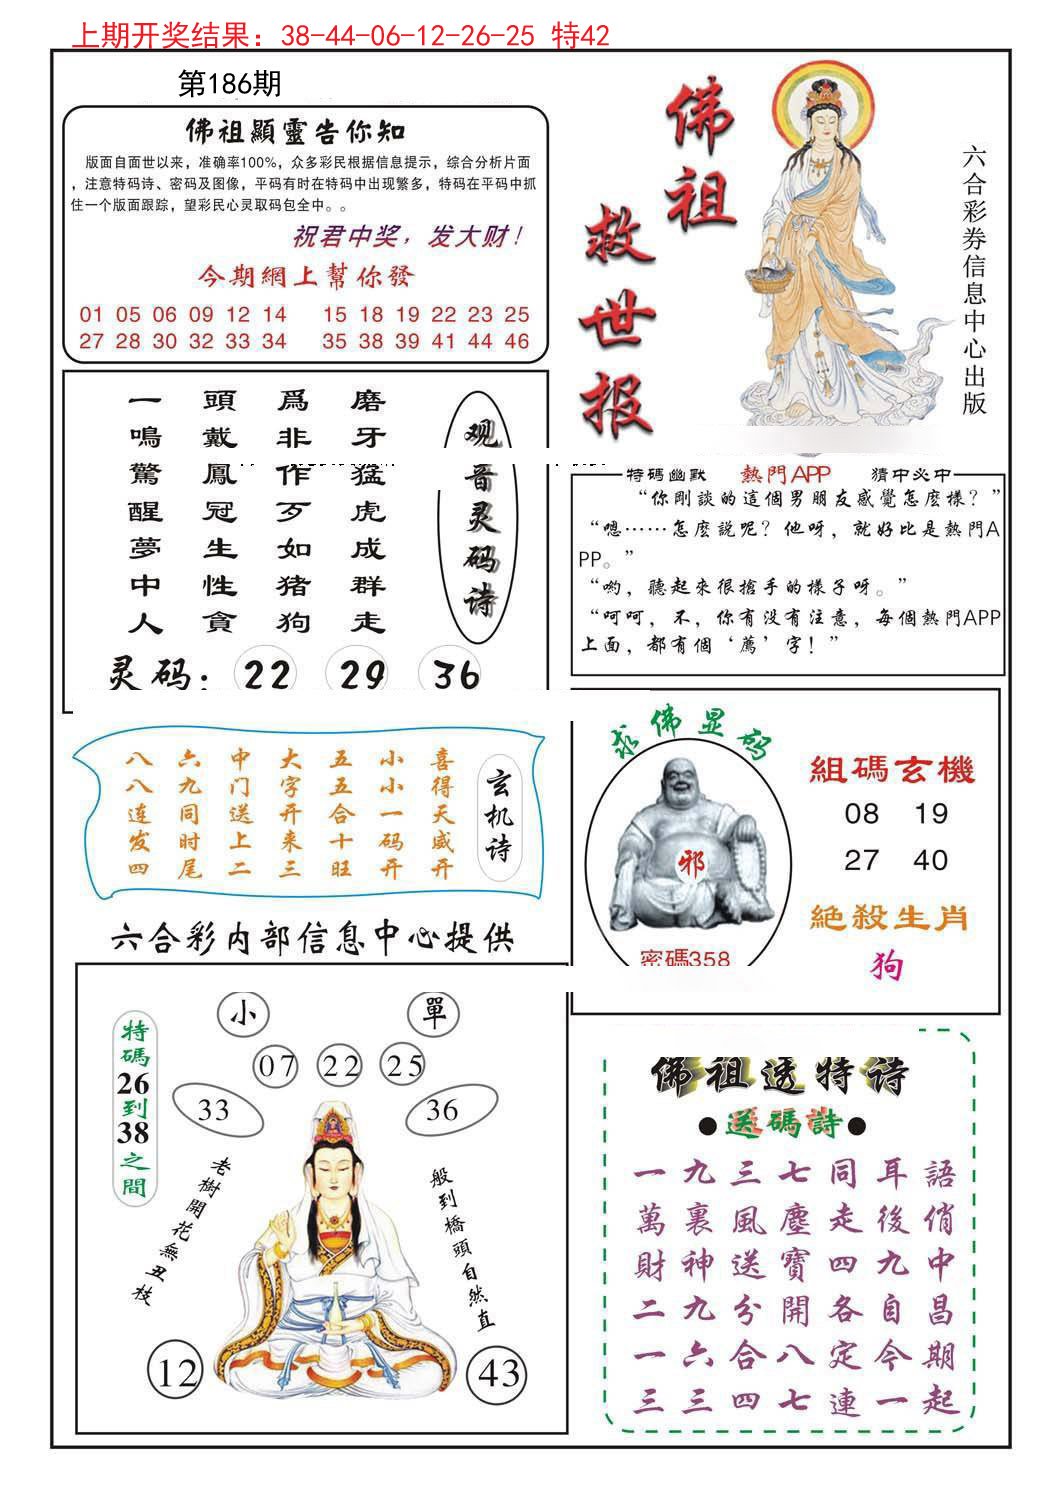 上期开奖结果：38-44-06-12-26-25 特42
第186期
佛祖顯靈告你知
版面自面世以来，准确率100%，众多彩民根据信息提示，综合分析片面
，注意特码诗、密码及图像，平码有时在特码中出现繁多，特码在平码中抓
住一个版面跟踪，望彩民心灵取码包全中。。
祝君中奖，发大财！
今期網上幫你發
01 05 06 09 12 14 15 18 19 22 23 25
27 28 30 32 33 34 35 38 39 41 44 46
佛祖
救世报
六合彩券信息中心出版
观音灵码诗
磨牙猛虎成群走
爲非作歹如猪狗
頭戴鳳冠生性貪
一鳴驚醒夢中人
灵码：22 29 36
特碼幽默 熱門APP 猜中必中
“你剛談的這個男朋友感覺怎麽樣？”
“嗯……怎麽說呢？他呀，就好比是熱門A
PP。”
“喲，聽起來很搶手的樣子呀。”
“呵呵，不，你有没有注意，每個熱門APP
上面，都有個‘薦’字！”
玄机诗
喜得天威开
小小一码开
五五合十旺
大字开来三
中门送上二
六九同时尾
八八连发四
六合彩内部信息中心提供
求佛显码
邪
密碼358
組碼玄機
08 19
27 40
絕殺生肖
狗
特碼26到38之間
小 單
07 22 25
33 36
老樹開花無丑枝
般到橋頭自然直
12 43
佛祖透特诗
●送碼詩●
一九三七同耳語
萬裏風塵走後俏
財神送寶四九中
二九分開各自昌
一六合八定今期
三三四七連一起